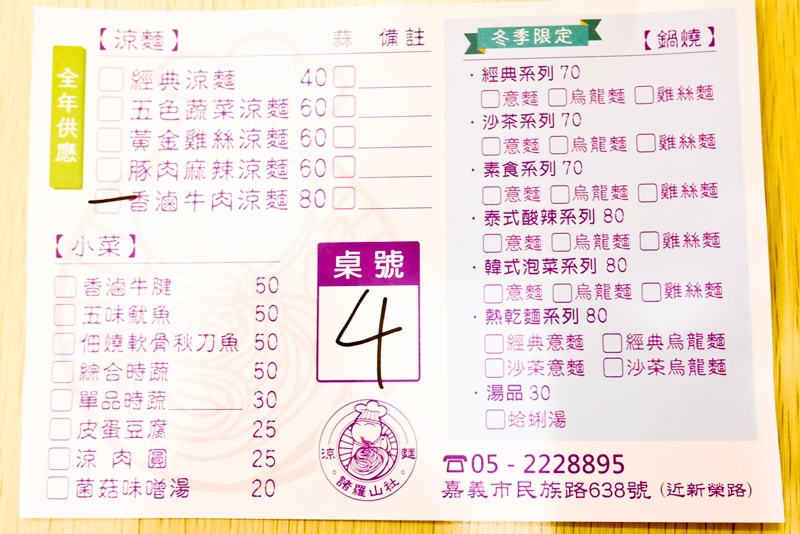 【涼麵】 蒜 備註
全年供應
經典涼麵 40
五色蔬菜涼麵 60
黃金雞絲涼麵 60
豚肉麻辣涼麵 60
香滷牛肉涼麵 80
【小菜】
香滷牛腱 50
五味魷魚 50
佃燒軟骨秋刀魚 50
綜合時蔬 50
單品時蔬______ 30
皮蛋豆腐 25
涼肉圓 25
菌菇味噌湯 20
桌號
4
涼 麵
諸羅山社
冬季限定 【鍋燒】
·經典系列 70
意麵 烏龍麵 雞絲麵
·沙茶系列 70
意麵 烏龍麵 雞絲麵
·素食系列 70
意麵 烏龍麵 雞絲麵
·泰式酸辣系列 80
意麵 烏龍麵 雞絲麵
·韓式泡菜系列 80
意麵 烏龍麵 雞絲麵
·熱乾麵系列 80
經典意麵 經典烏龍麵
沙茶意麵 沙茶烏龍麵
·湯品 30
蛤蜊湯
☎05 - 2228895
嘉義市民族路638號 (近新榮路)